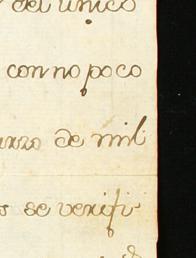 del unico
con no poco
marzo de mil
se verifi